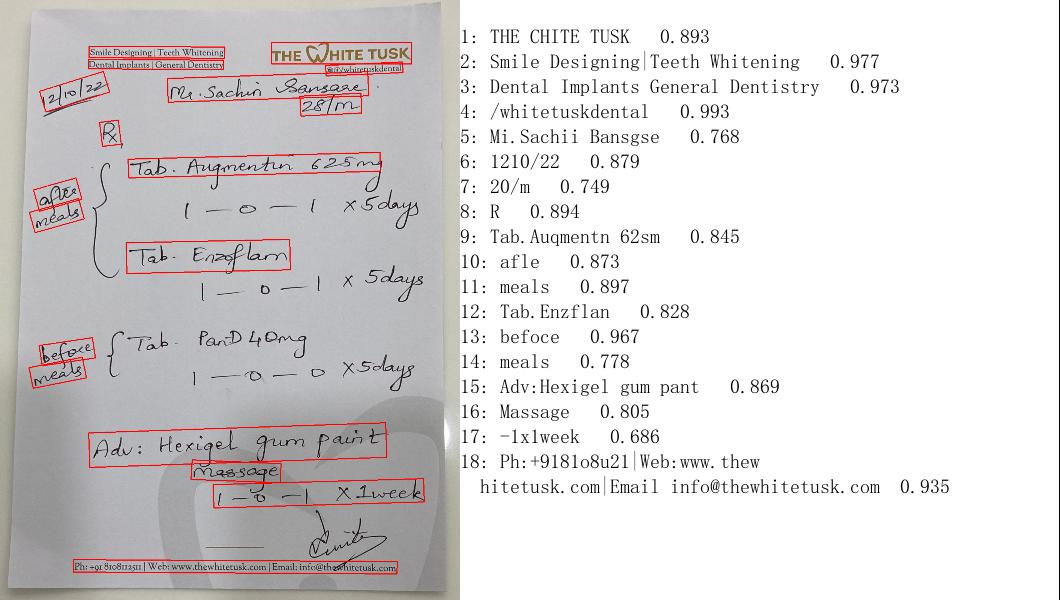 Smile Designing | Teeth Whitening
Dental Implants | General Dentistry
THE WHITE TUSK
@/whitetuskdental
12/10/22
Mr. Sachin Sansare
28/m
Rx
after meals
Tab. Augmentin 625mg
1 — 0 — 1 x 5days
Tab. Enzoflam
1 — 0 — 1 x 5days
before meals
Tab. PanD 40mg
1 — 0 — 0 x 5days
Adv: Hexigel gum paint
massage
1 — 0 — 1 x 1week
Ph: +91 8108112511 | Web: www.thewhitetusk.com | Email: info@thewhitetusk.com
1: THE CHITE TUSK 0.893
2: Smile Designing|Teeth Whitening 0.977
3: Dental Implants General Dentistry 0.973
4: /whitetuskdental 0.993
5: Mi.Sachii Bansgse 0.768
6: 1210/22 0.879
7: 20/m 0.749
8: R 0.894
9: Tab.Auqmentn 62sm 0.845
10: afle 0.873
11: meals 0.897
12: Tab.Enzflan 0.828
13: befoce 0.967
14: meals 0.778
15: Adv:Hexigel gum pant 0.869
16: Massage 0.805
17: -1x1week 0.686
18: Ph:+9181o8u21|Web:www.thew
hitetusk.com|Email info@thewhitetusk.com 0.935